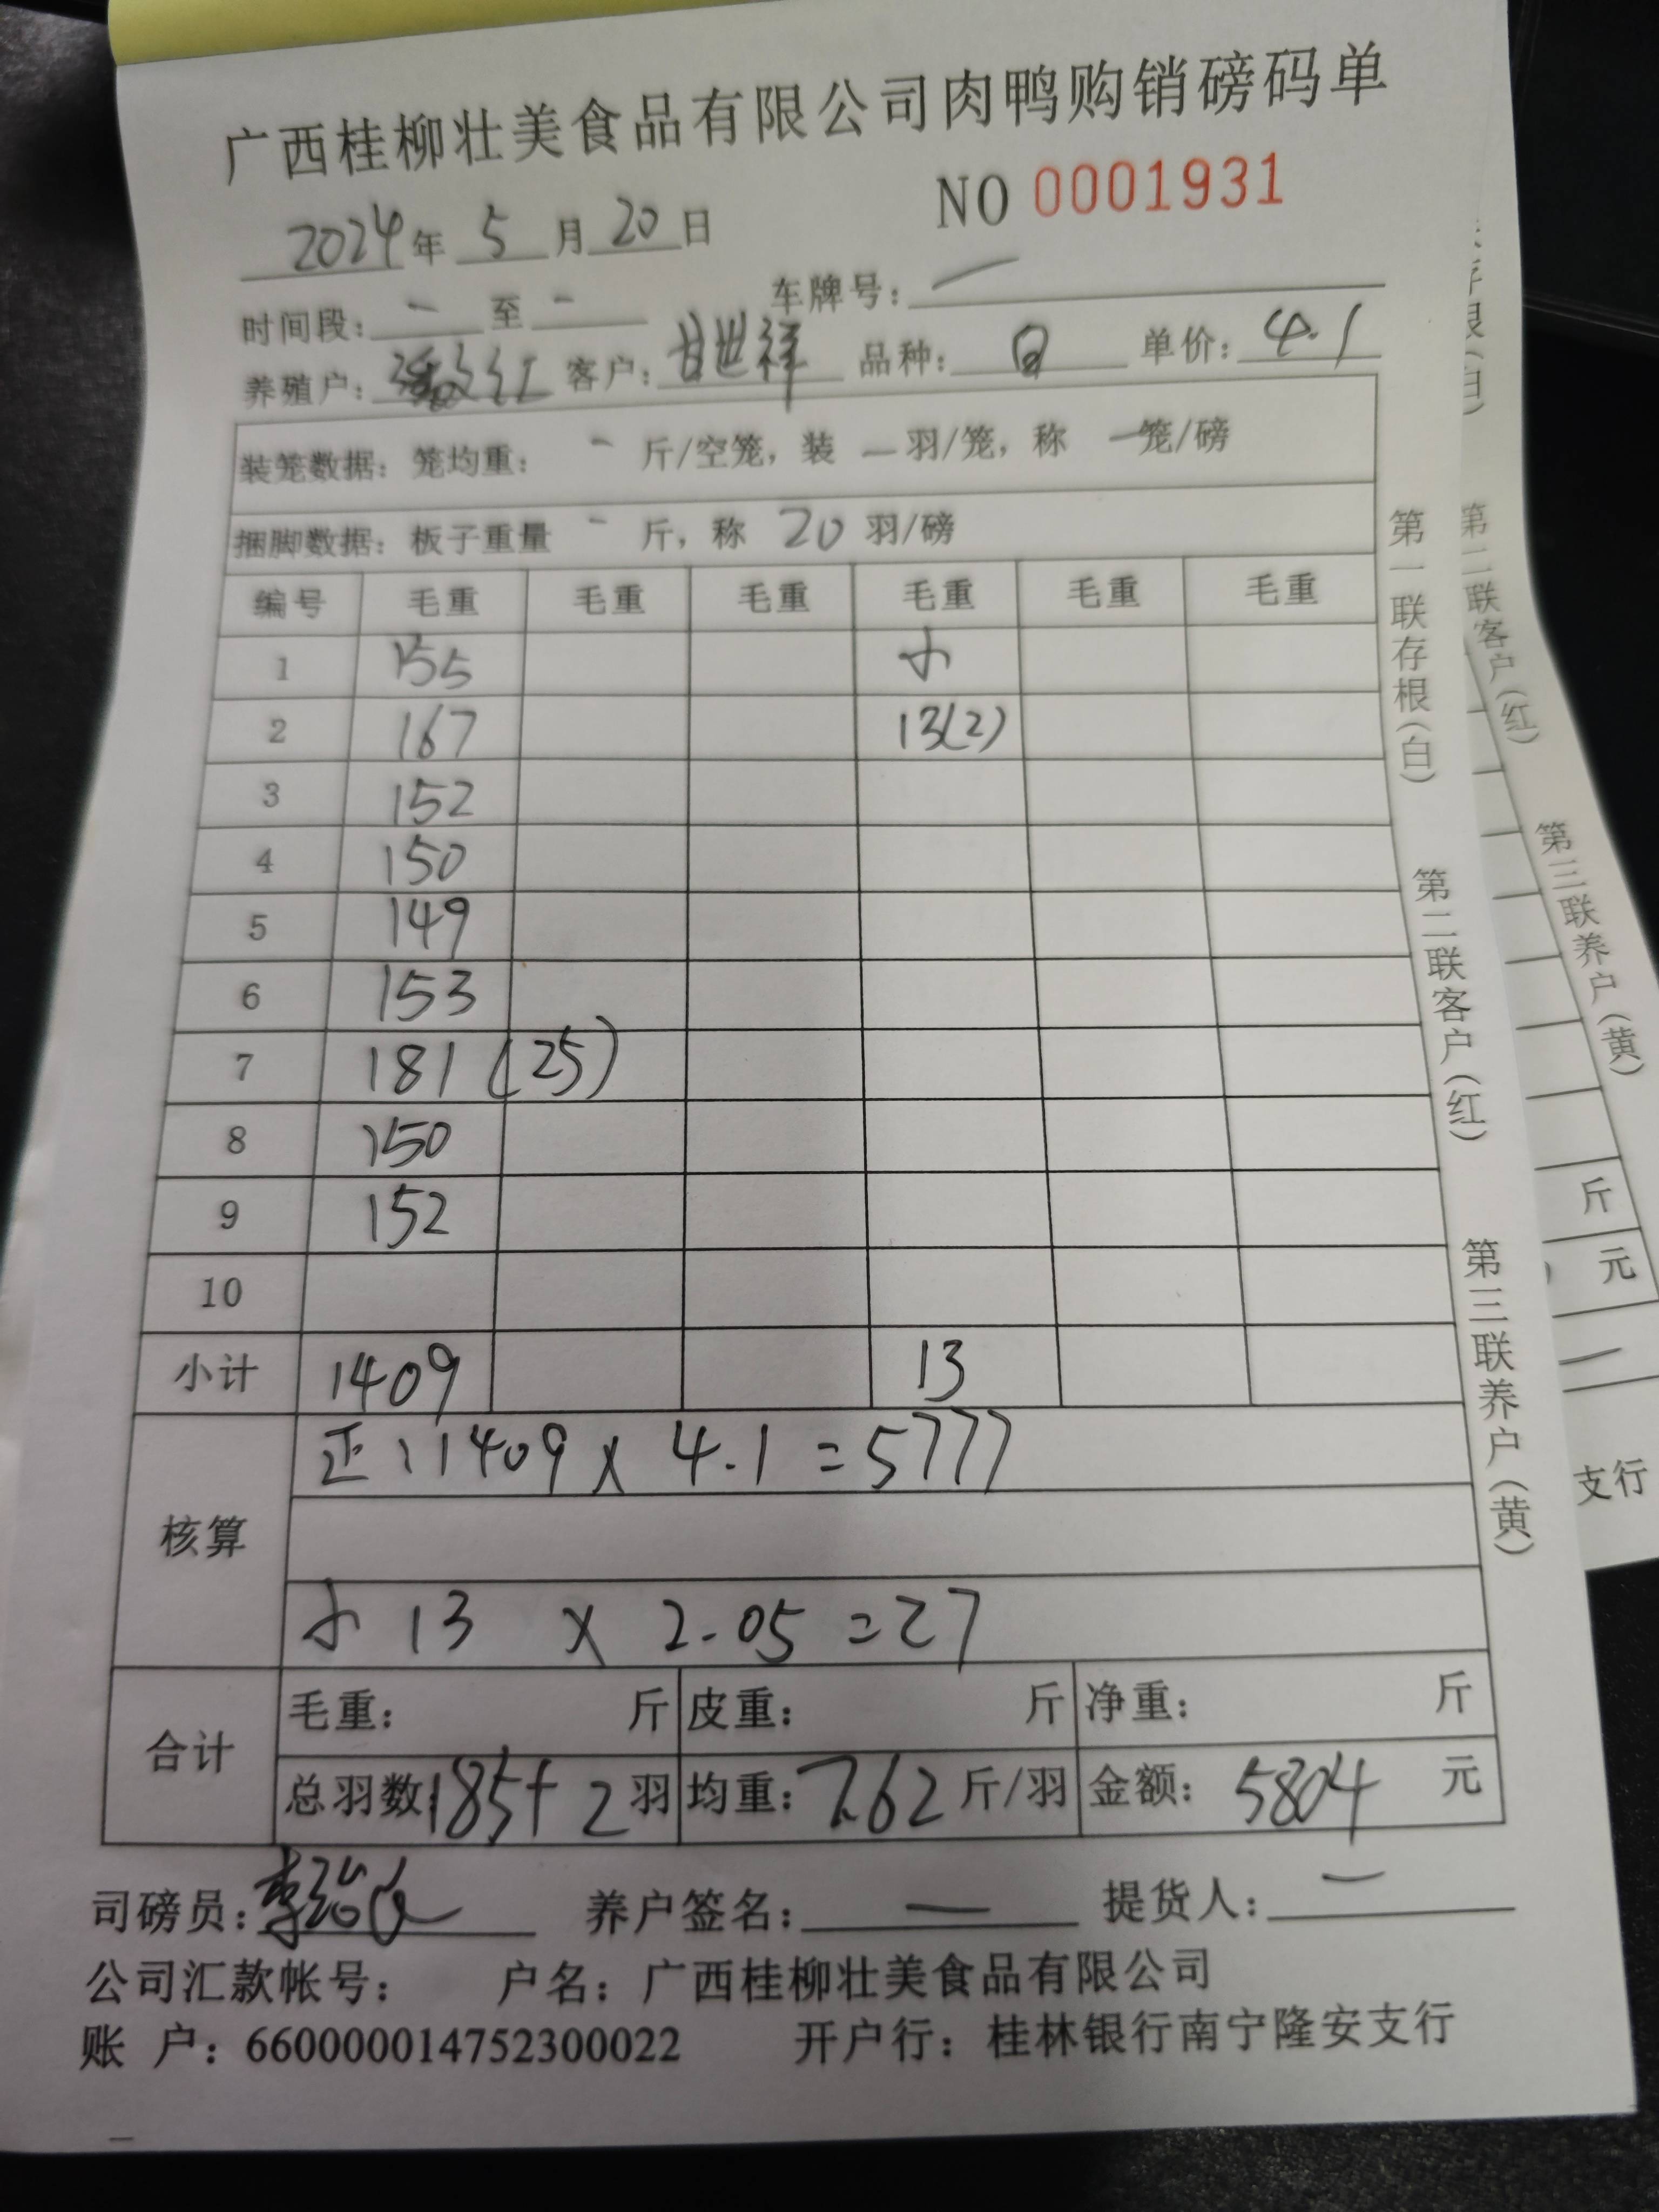 广西桂柳壮美食品有限公司肉鸭购销磅码单
NO 0001931
2024年 5 月 20 日
时间段: - 至 - 车牌号: 一
养殖户: 红 客户: 甘世祥 品种: 白 单价: 4.1
装笼数据: 笼均重: - 斤/空笼, 装 - 羽/笼, 称 - 笼/磅
捆脚数据: 板子重量 - 斤, 称 20 羽/磅
编号 毛重 毛重 毛重 毛重 毛重 毛重
1 155 小
2 167 13(2)
3 152
4 150
5 149
6 153
7 181 (25)
8 150
9 152
10
小计 1409 13
核算
正: 1409 x 4.1 = 5777
小 13 x 2.05 = 27
合计
毛重: 斤 皮重: 斤 净重: 斤
总羽数: 185+2 羽 均重: 7.62 斤/羽 金额: 5804 元
司磅员: 李 养户签名: 一 提货人: 一
公司汇款帐号: 户名: 广西桂柳壮美食品有限公司
账 户: 660000014752300022 开户行: 桂林银行南宁隆安支行
第一联存根(白)
第二联客户(红)
第三联养户(黄)
存根(白)
第二联客户(红)
第三联养户(黄)
斤
元
支行